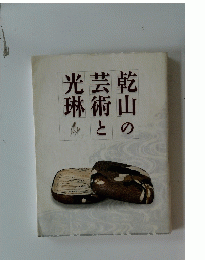 乾山の
芸術と
光琳